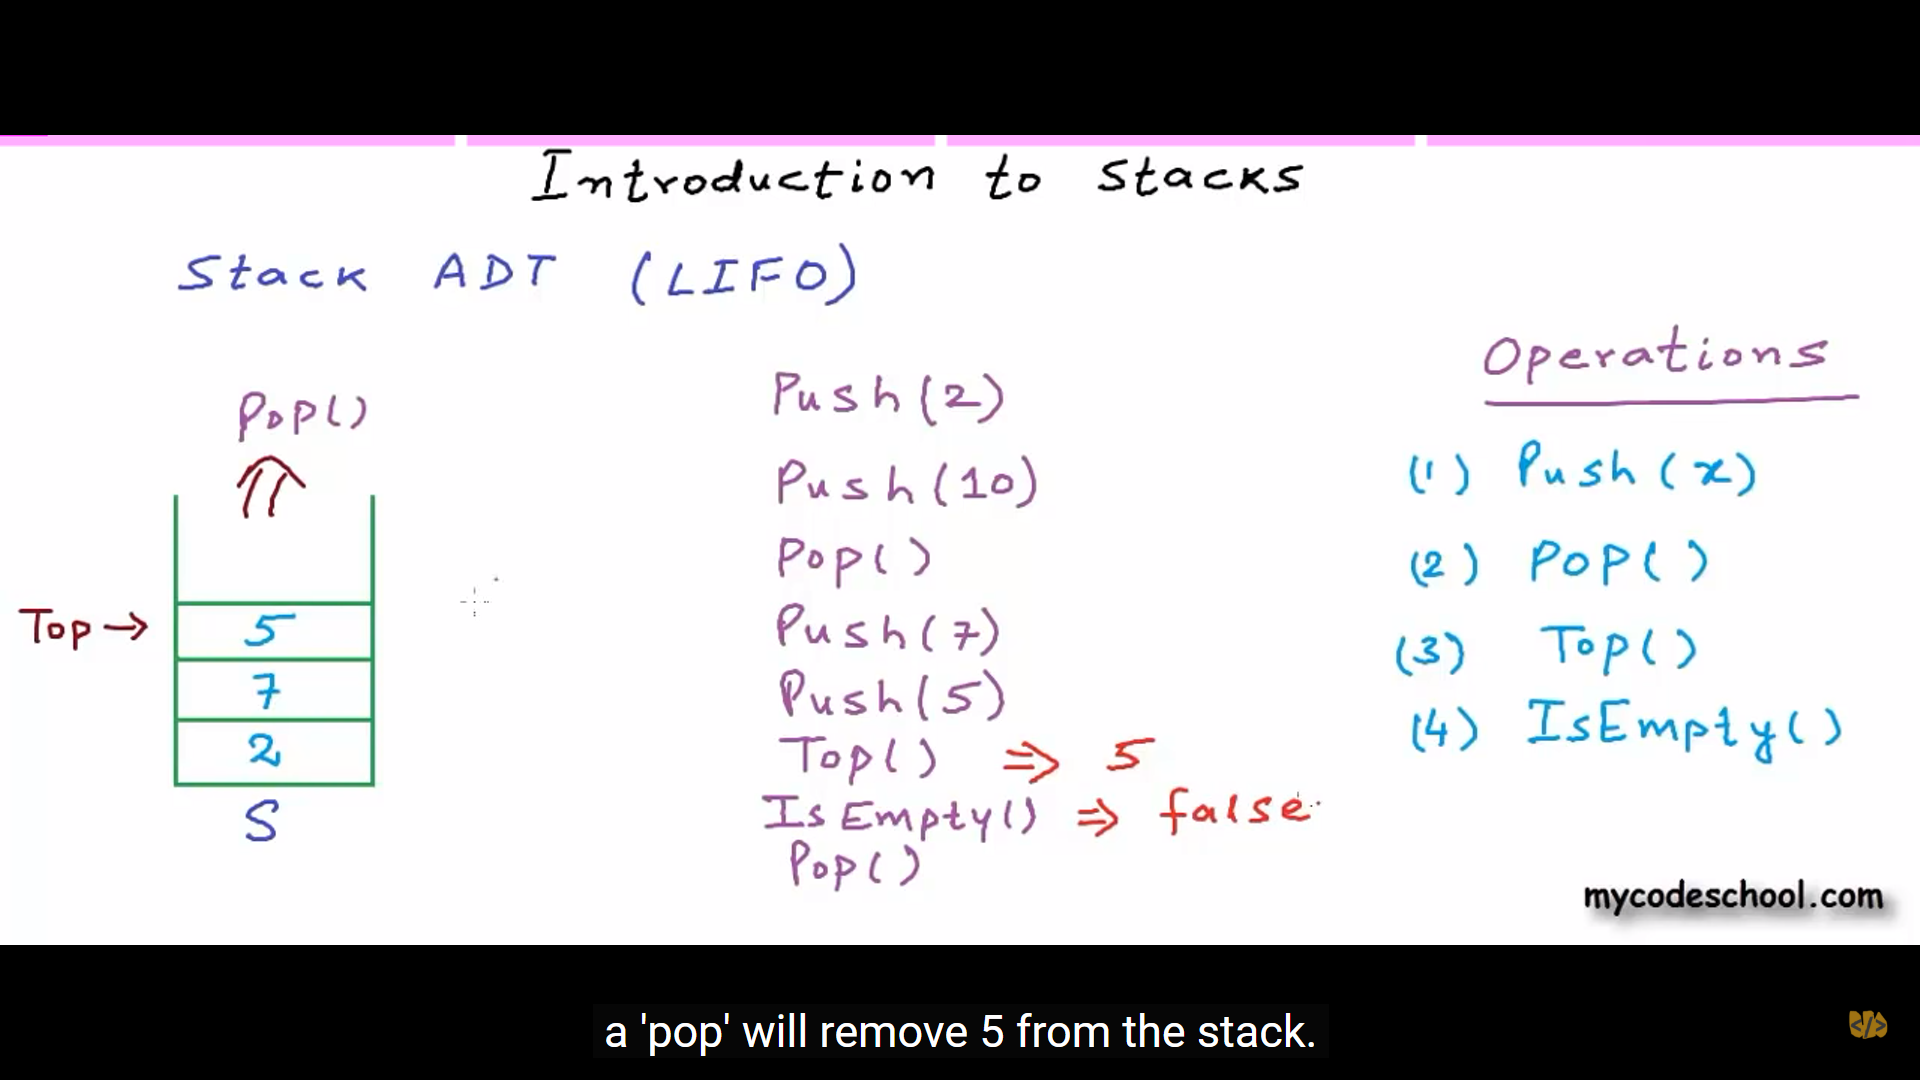 Introduction to stacks
Stack ADT (LIFO)
Pop()
Top →
5
7
2
S
Push(2)
Push(10)
Pop()
Push(7)
Push(5)
Top() ⇒ 5
IsEmpty() ⇒ false
Pop()
Operations
(1) Push(x)
(2) Pop()
(3) Top()
(4) IsEmpty()
mycodeschool.com
a 'pop' will remove 5 from the stack.